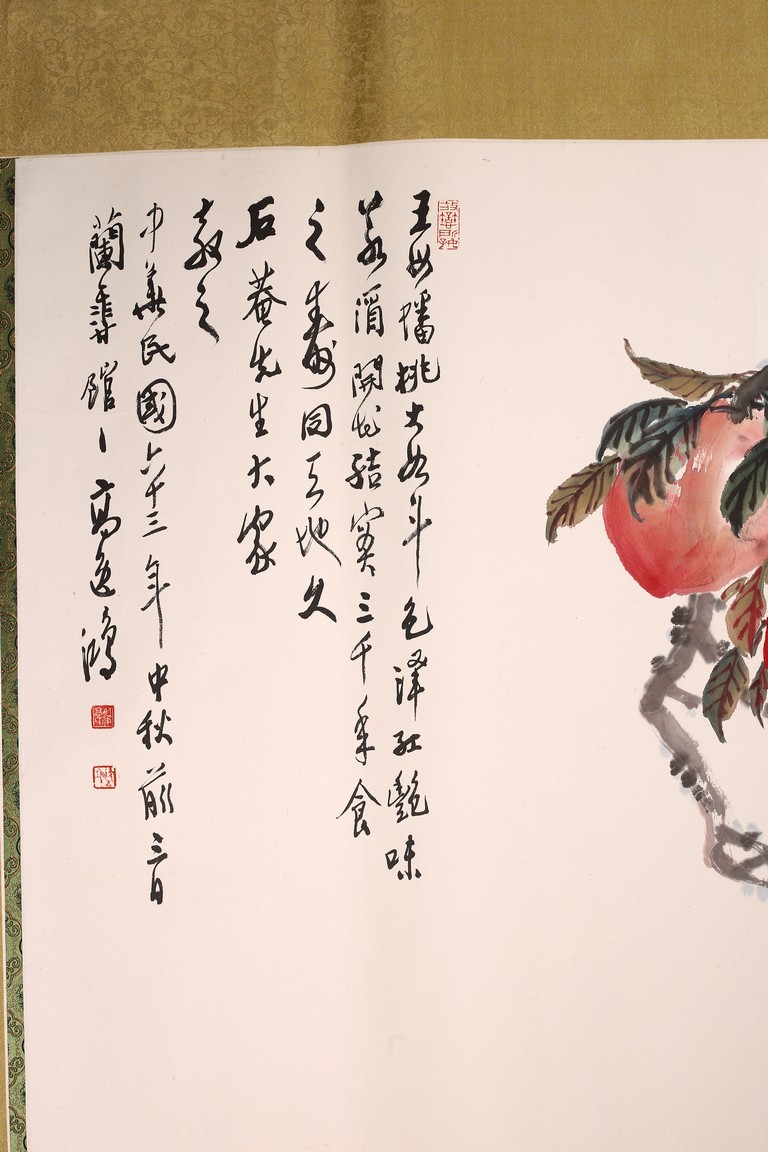 王母蟠桃大如斗色澤紅艷味
開花結實三千年食
之壽同天地久
石菴先生大家
教之
中華民國六十三年中秋前三日
蘭館高逸鴻